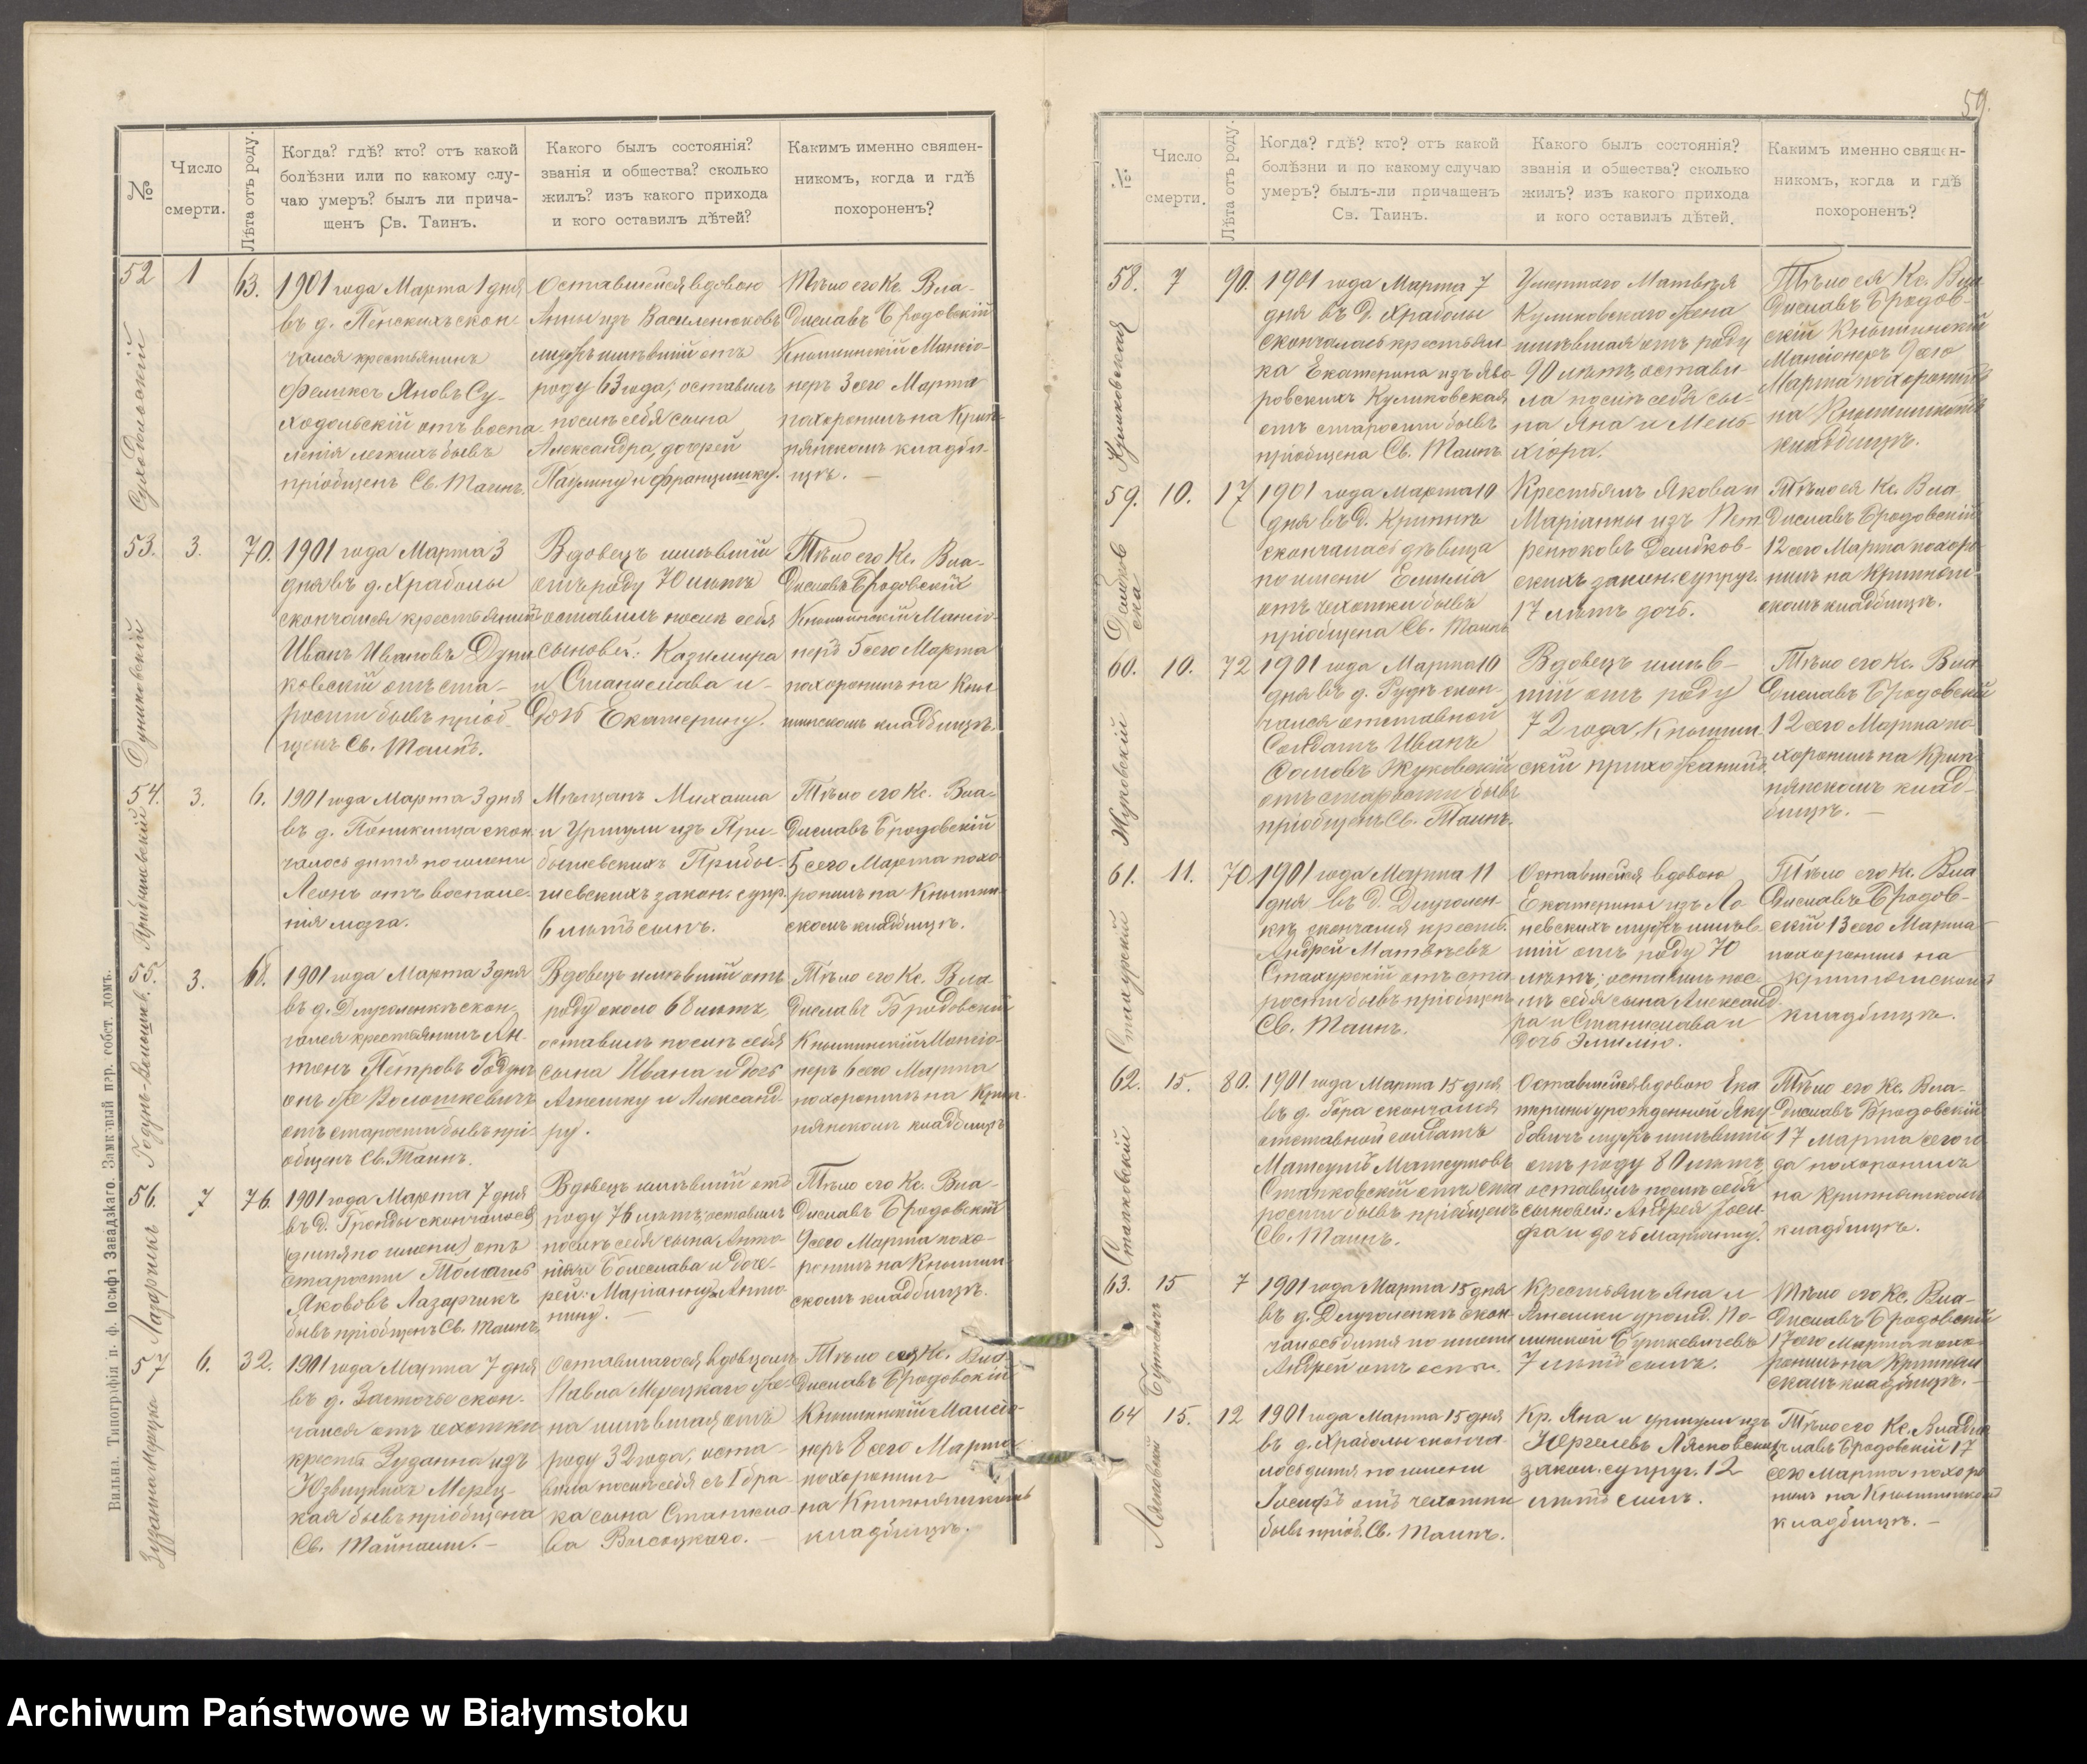 59.
№
Число
смерти.
Лѣта отъ роду.
Когда? гдѣ? кто? отъ какой
болѣзни или по какому слу-
чаю умеръ? былъ ли прича-
щенъ Св. Таинъ.
Какого былъ состоянія?
званія и общества? сколько
жилъ? изъ какого прихода
и кого оставилъ дѣтей?
Какимъ именно священ-
никомъ, когда и гдѣ
похороненъ?
52
1
63.
1901 года Марта 1 дня
въ д. Пенскихъ скон-
чался крестьянинъ
Феликсъ Яновъ Су-
ходольскій отъ воспа
ленія легкихъ бывъ
пріобщенъ Св. Таинъ.
Оставшейся вдовою
Анны изъ Василенюковъ
мужъ имѣвшій отъ
роду 63 года; оставилъ
послѣ себя сына
Александра, дочрей
Паулину и Францишку.
Тѣло его Кс. Вла-
диславъ Бродовскій
Кнышинскій Мансіо-
неръ 3 сего Марта
похоронилъ на Крып-
нянскомъ кладби-
щѣ. —
53.
3.
70.
Дуниковскій
1901 года Марта 3
дня въ д. Храболы
скончался крестьянинъ
Иванъ Ивановъ Дуни
ковскій отъ ста-
рости бывъ пріоб-
щенъ Св. Таинъ.
Вдовецъ имѣвшій
отъ роду 70 лѣтъ
оставилъ послѣ себя
сыновей: Казимира
и Станислава и-
дочь Екатерину.
Тѣло его Кс. Вла-
диславъ Бродовскій
Кнышинскій Мансіо-
неръ 5 сего Марта
похоронилъ на Кны
шинскомъ кладбищѣ.
54.
3.
6.
1901 года Марта 3 дня
въ д. Поникница скон
чалось дитя по имени
Леонъ отъ воспале-
нія мозга.
Мѣщанъ Михаила
и Уршули изъ При-
былевскихъ Прибы-
левскихъ закон. супр.
6 лѣтъ сынъ.
Тѣло его Кс. Вла-
диславъ Бродовскій
5 сего Марта похо-
ронилъ на Кнышин-
скомъ кладбищѣ.
55.
3.
68.
1901 года Марта 3 дня
въ д. Длуголенкѣ скон-
чался крестьянинъ Ан-
тонъ Петровъ Годунъ
онъ же Волошкевичъ
отъ старости бывъ прі-
общенъ Св. Таинъ.
Вдовецъ имѣвшій отъ
роду около 68 лѣтъ,
оставилъ послѣ себя
сына Ивана и дочь
Агнешку и Александ-
ру.
Тѣло его Кс. Вла
диславъ Бродовскій
Кнышинскій Мансіо-
неръ 6 сего Марта
похоронилъ на Крып-
нянскомъ кладбищѣ
56.
7
76.
Лазарчикъ
1901 года Марта 7 дня
въ д. Гронды скончалось
(дитя по имени) отъ
старости Томашъ
Якововъ Лазарчикъ
бывъ пріобщенъ Св. Таинъ.
Вдовецъ имѣвшій отъ
роду 76 лѣтъ, оставилъ
послѣ себя сына Анто-
нія и Болеслава и доче-
рей: Маріанну и Анто-
нину. —
Тѣло его Кс. Вла-
диславъ Бродовскій
9 сего Марта похо-
ронилъ на Кнышин-
скомъ кладбищѣ.
57
6.
32.
1901 года Марта 7 дня
въ д. Засточье скон-
чался отъ чехотки
крест. Зузанна изъ
Мерец-
кая бывъ пріобщена
Св. Тайнами. —
Оставшагося вдовцомъ
Павла Мерецкаго же-
на имѣвшая отъ
роду 32 года, оста-
вила послѣ себя съ 1 бра-
ка сына Станисла-
ва Высоцкаго. —
Тѣло ея Кс. Вла
диславъ Бродовскій
Кнышинскій Мансіо-
неръ 8 сего Марта
похоронилъ
на Крыпнянскомъ
кладбищѣ.
Вильна. Типографія п. ф. Іосифъ Завадзкаго. Замковый пер. собст. домъ.
№
Число
смерти.
Лѣта отъ роду.
Когда? гдѣ? кто? отъ какой
болѣзни и по какому случаю
умеръ? былъ-ли причащенъ
Св. Таинъ.
Какого былъ состоянія?
званія и общества? сколько
жилъ? изъ какого прихода
и кого оставилъ дѣтей.
Какимъ именно священ-
никомъ, когда и гдѣ
похороненъ?
58.
7
90.
Куликовская
1901 года Марта 7
дня въ д. Храболы
скончалась крестьян-
ка Екатерина изъ Яво-
ровскихъ Куликовская
отъ старости бывъ
пріобщена Св. Таинъ
Умершаго Матвѣя
Куликовскаго жена
имѣвшая отъ роду
90 лѣтъ, остави-
ла послѣ себя сы-
на Яна и Мель-
хіора.
Тѣло ея Кс. Вла
диславъ Бродов-
скій Кнышинскій
Мансіонеръ 9 сего
Марта похоронилъ
на Кнышинскомъ
кладбищѣ.
59.
10.
17
1901 года Марта 10
дня въ д. Крыпно
скончалась дѣвица
по имени Емилія
отъ чехотки бывъ
пріобщена Св. Таинъ
Крестьянъ Якова и
Маріанны изъ Пет
ренюковъ Домбков-
скихъ закон. супруг.
17 лѣтъ дочь.
Тѣло ея Кс. Вла
диславъ Бродовскій
12 сего Марта похоро-
нилъ на Крыпнян-
скомъ кладбищѣ.
60.
10.
72
Жуковскій
1901 года Марта 10
дня въ д. Рудѣ скон-
чался отставной
Солдатъ Иванъ
Фомовъ Жуковскій
отъ старости бывъ
пріобщенъ Св. Таинъ.
Вдовецъ имѣв-
шій отъ роду
72 года Кнышин-
скій прихожанинъ.
Тѣло его Кс. Вла
диславъ Бродовскій
12 сего Марта по-
хоронилъ на Крып-
нянскомъ клад-
бищѣ. —
61.
11.
70
Стахурскій
1901 года Марта 11
дня въ д. Длуголен-
кѣ скончался крест.
Андрей Матвѣевъ
Стахурскій отъ ста
рости бывъ пріобщенъ
Св. Таинъ.
Оставшейся вдовою
Екатерины изъ Ло-
невскихъ мужъ имѣв-
шій отъ роду 70
лѣтъ; оставилъ пос-
лѣ себя сына Александ-
ра и Станислава и
дочь Эмилію.
Тѣло его Кс. Вла
диславъ Бродов-
скій 13 сего Марта
похоронилъ на
Крыпнянскомъ
кладбищѣ.
62.
15.
80.
Станковскій
1901 года Марта 15 дня
въ д. Гора скончался
отставной солдатъ
Матеушъ Матеушовъ
Станковскій отъ ста
рости бывъ пріобщенъ
Св. Таинъ.
Оставшейся вдовою Ека
терины урожденной Яку-
бовичъ мужъ имѣвшій
отъ роду 80 лѣтъ,
оставилъ послѣ себя
сыновей: Андрея Іоси-
фа и дочь Мартинну.
Тѣло его Кс. Вла-
диславъ Бродовскій
17 марта сего го
да похоронилъ
на Крыпнянскомъ
кладбищѣ.
63.
15
7
Буткевичъ
1901 года Марта 15 дня
въ д. Длуголенкѣ скон-
чалось дитя по имени
Андрей отъ оспы.
Крестьянъ Яна и
Агнешки урожд.
Буткевичевъ
7 лѣтъ сынъ.
Тѣло его Кс. Вла-
диславъ Бродовскій
17 сего Марта похо-
ронилъ на Крыпнян
скомъ кладбищѣ. —
64
15.
12
Лясковскій
1901 года Марта 15 дня
въ д. Храболы сконча-
лось дитя по имени
Іосифъ отъ чехотки
бывъ пріоб. Св. Таинъ.
Кр. Яна и Уршули изъ
Лясковскихъ
закон. супруг. 12
лѣтъ сынъ.
Тѣло его Кс. Влади
славъ Бродовскій 17
сего Марта похоро
нилъ на Кнышинском
кладбищѣ. —
Archiwum Państwowe w Białymstoku